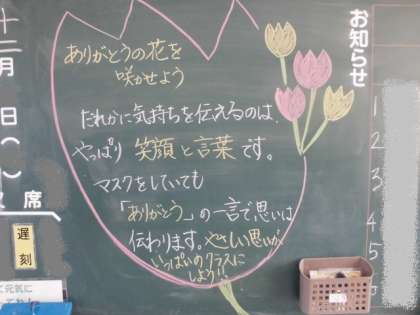 お知らせ
十二月 日( )
席
遅刻
ありがとうの花を
咲かせよう
だれかに気持ちを伝えるのは、
やっぱり 笑顔と言葉です。
マスクをしていても
「ありがとう」の一言で思いは
伝わります。やさしい思いが
いっぱいのクラスに
しよう!!
1
2
3
4
5
く元気に